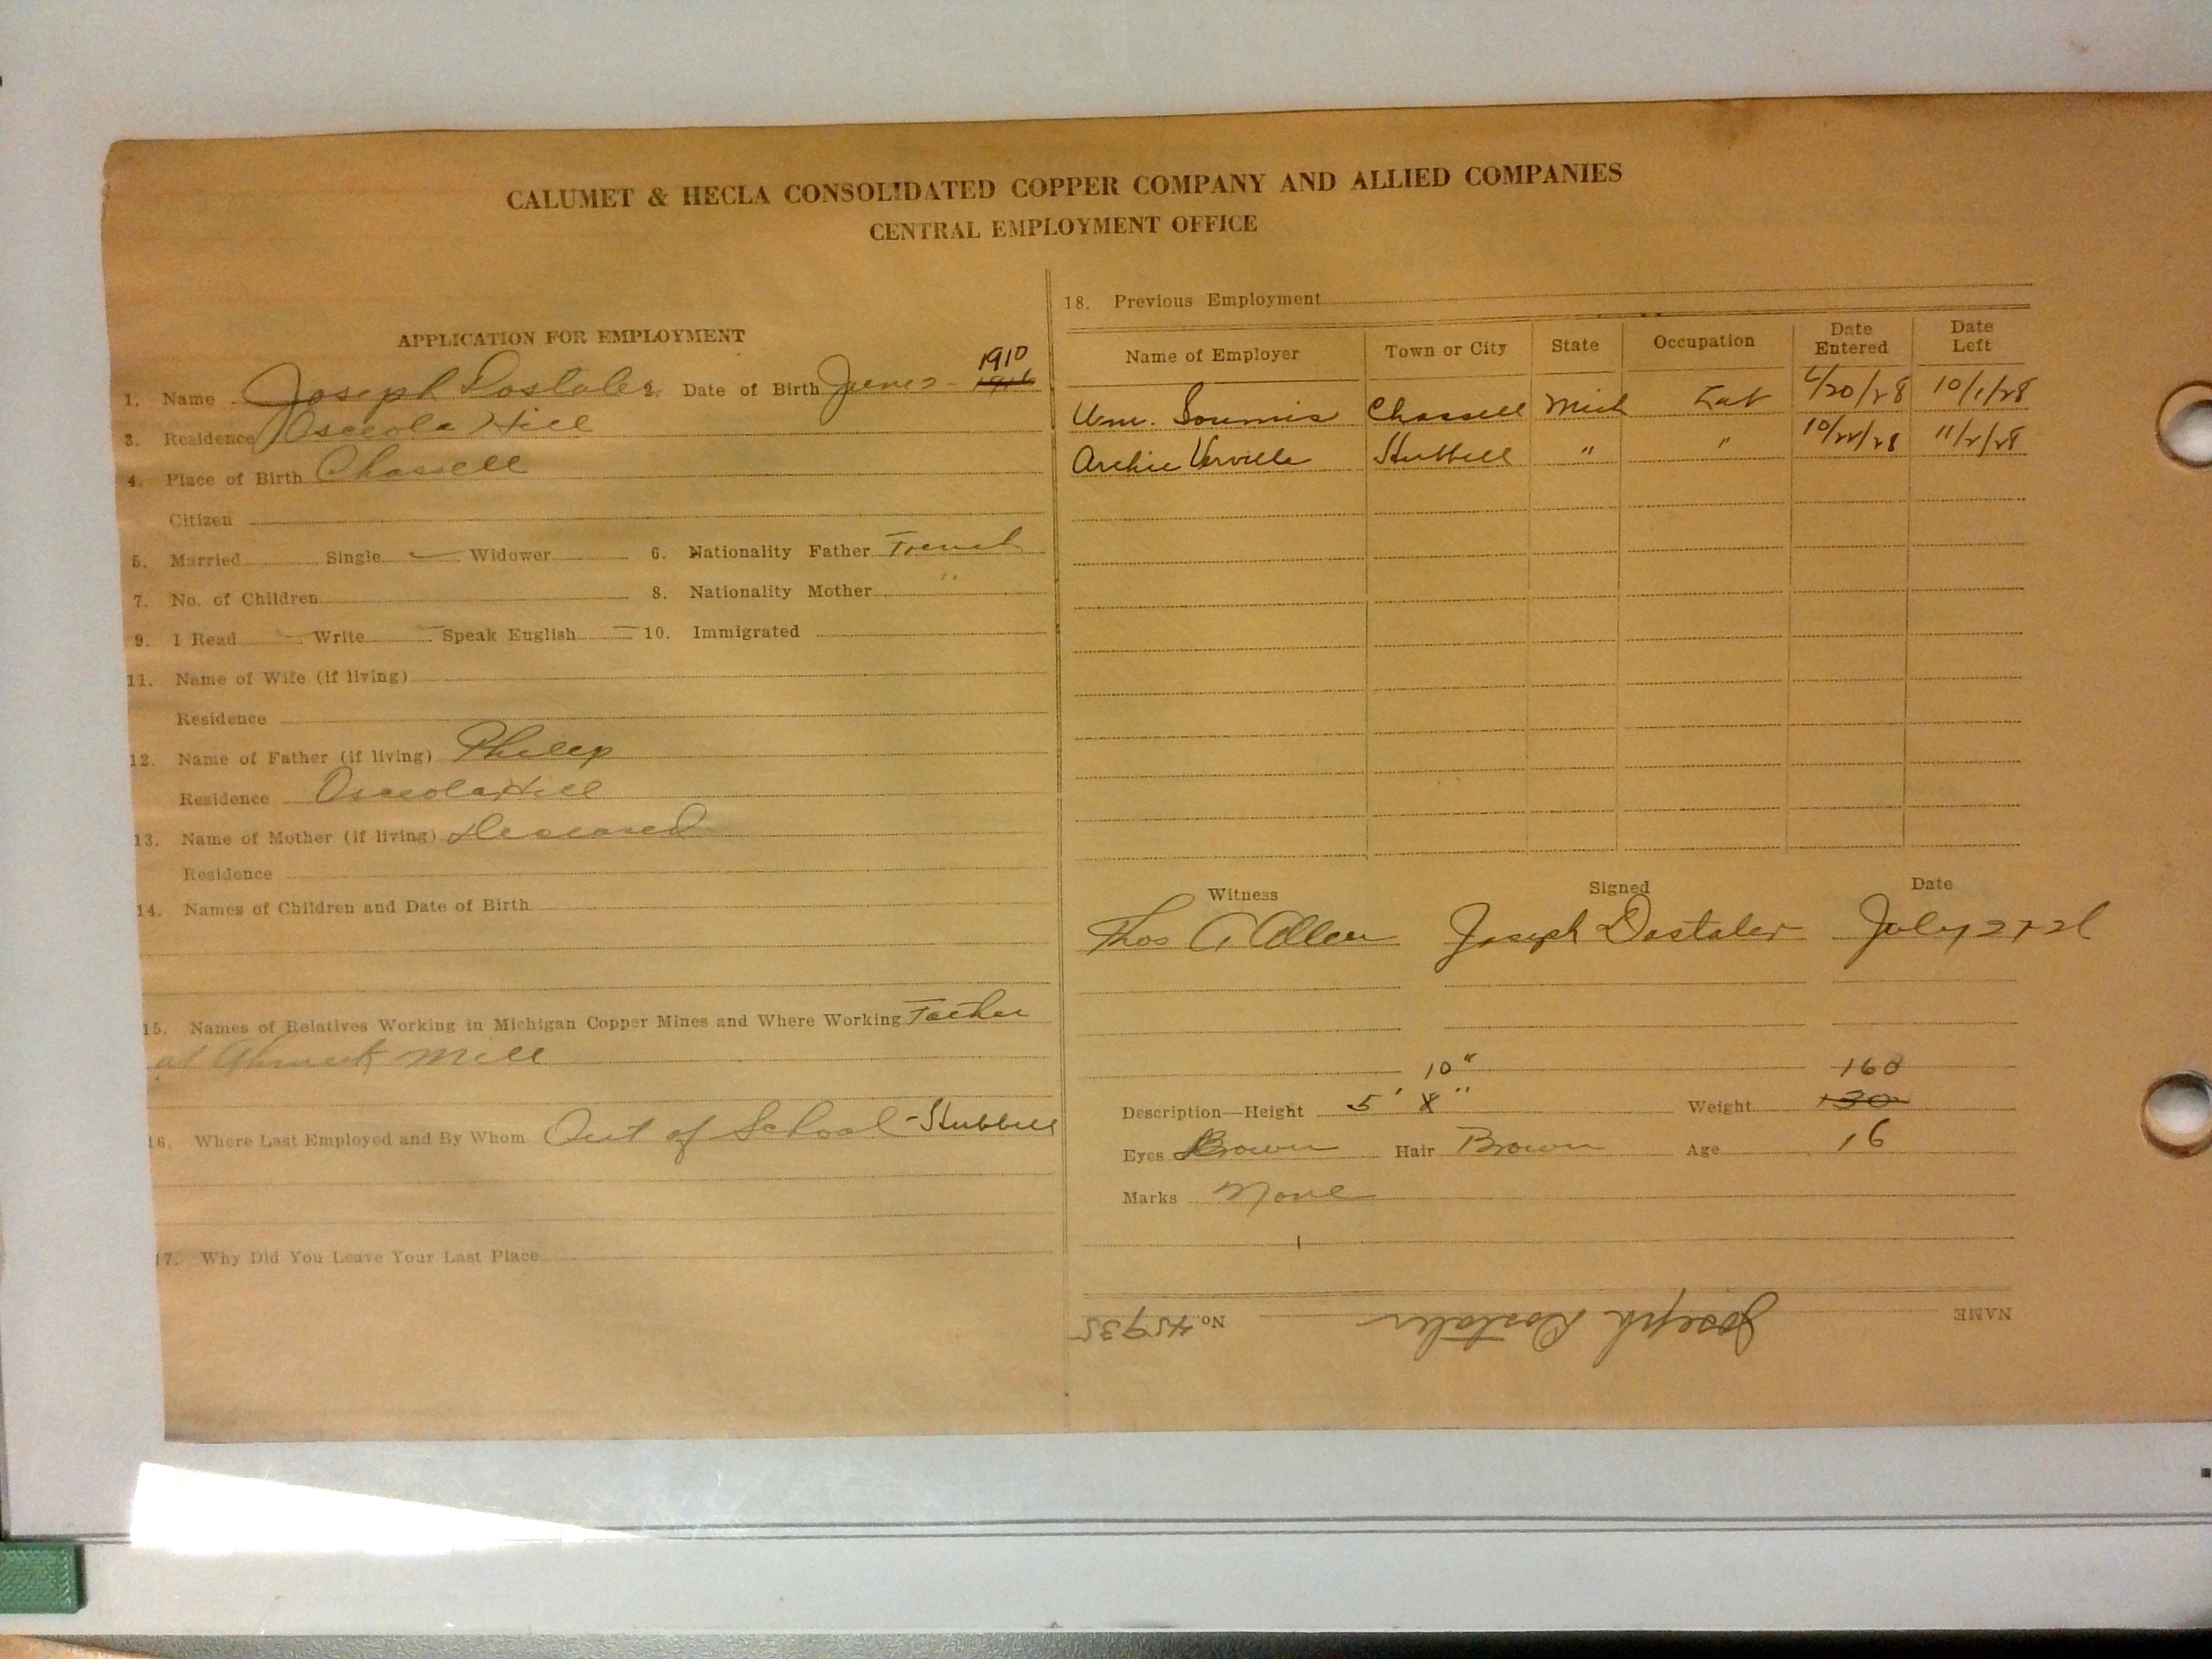 CALUMET & HECLA CONSOLIDATED COPPER COMPANY AND ALLIED COMPANIES
CENTRAL EMPLOYMENT OFFICE
APPLICATION FOR EMPLOYMENT
1910
1. Name Joseph Dostaler Date of Birth June 2 -
3. Residence Osceola Hill
4. Place of Birth Chassell
Citizen
5. Married Single Widower 6. Nationality Father French
7. No. of Children 8. Nationality Mother "
9. I Read Write Speak English 10. Immigrated
11. Name of Wife (if living)
Residence
12. Name of Father (if living) Philip
Residence Osceola Hill
13. Name of Mother (if living) Deceased
Residence
14. Names of Children and Date of Birth
15. Names of Relatives Working in Michigan Copper Mines and Where Working Father
at Ahmeek Mill
16. Where Last Employed and By Whom Out of School - Hubbell
17. Why Did You Leave Your Last Place
18. Previous Employment
Name of Employer Town or City State Occupation Date Entered Date Left
Wm. Chassell Mich Lab /20/28 10/1/28
Archie Verville Hubbell " " 10/22/28 11/2/28
Witness Signed Date
Thos Allen Joseph Dostaler July 27
10" 160
Description—Height 5' 8" Weight 130
Eyes Brown Hair Brown Age 16
Marks None
NAME Joseph Dostaler No. 45935